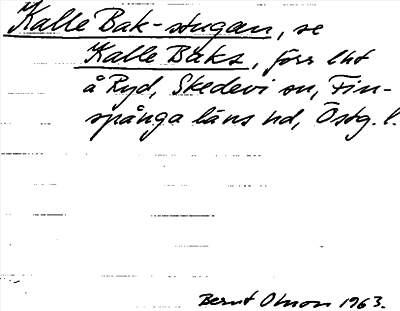 Kalle Bak-stugan, se
Kalle Baks, förr lht
å Ryd, Skedevi sn, Fin-
spånga läns hd, Östg. l.
Bernt Olsson 1963.